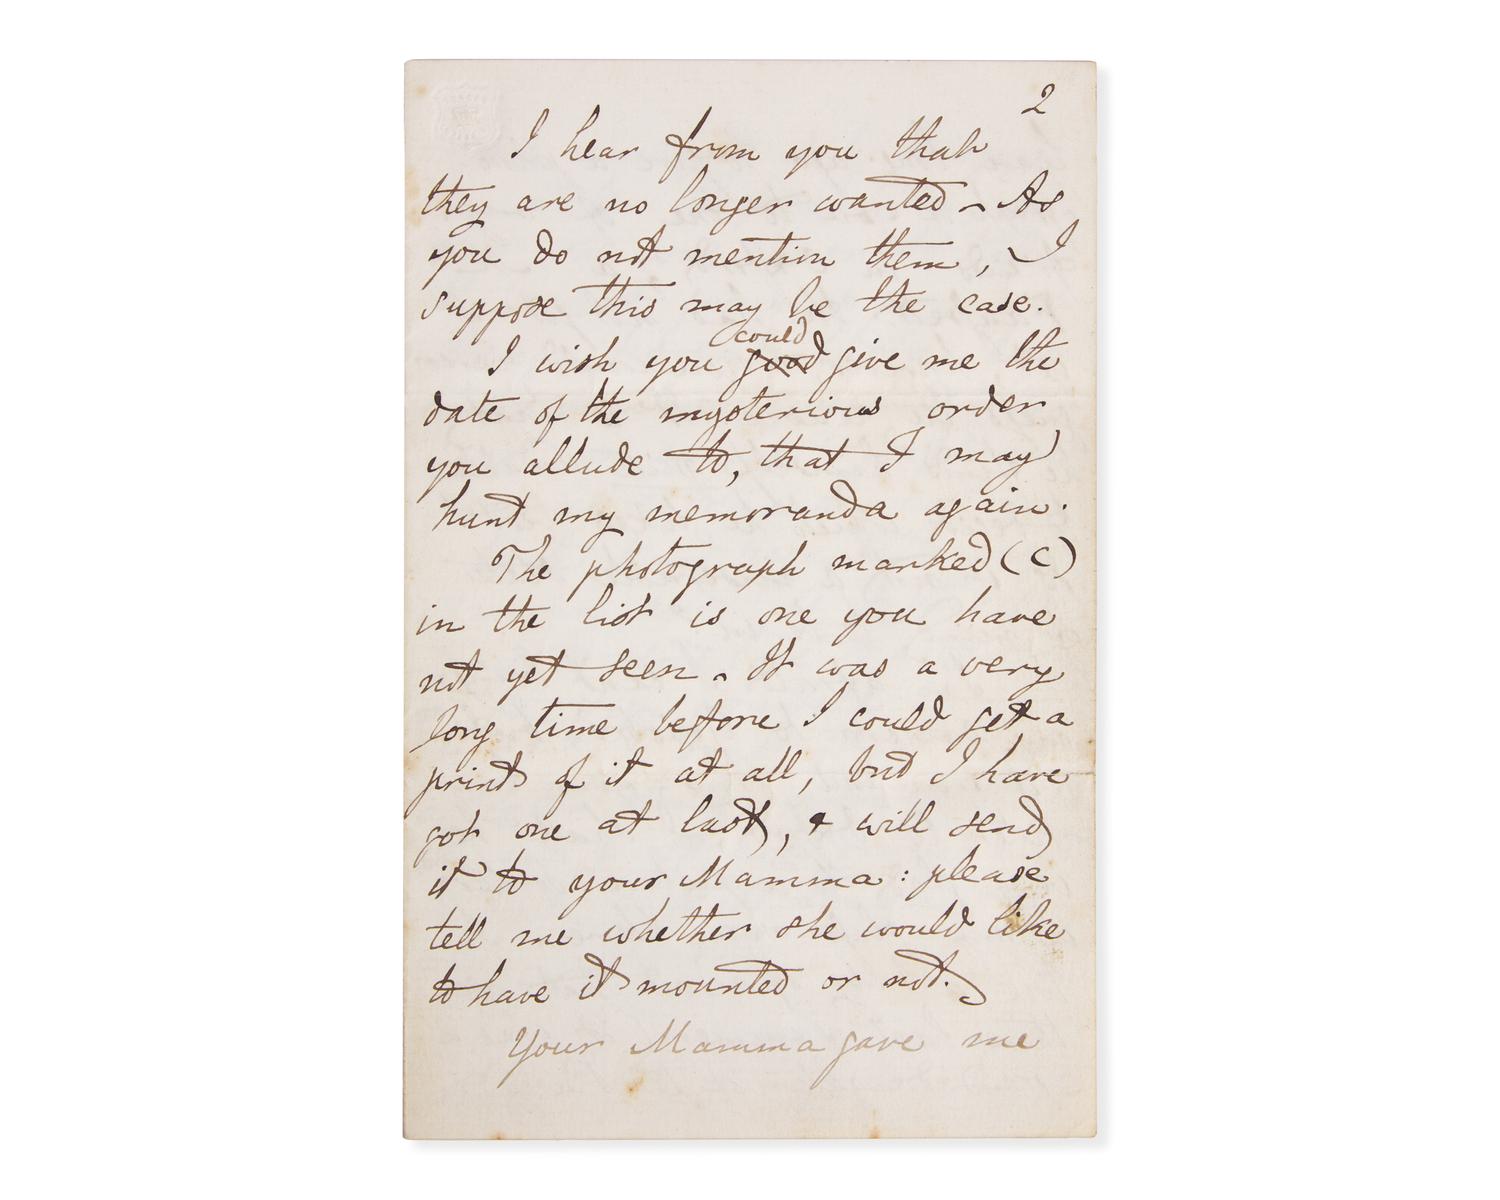 2
I hear from you that
they are no longer wanted - As
you do not mention them, I
suppose this may be the case.
could
I wish you good give me the
date of the mysterious order
you allude to, that I may
hunt my memoranda again.
The photograph marked (C)
in the list is one you have
not yet seen - It was a very
long time before I could get a
print of it at all, but I have
got one at last, & will send
it to your Mamma: please
tell me whether she would like
to have it mounted or not.
Your Mamma gave me